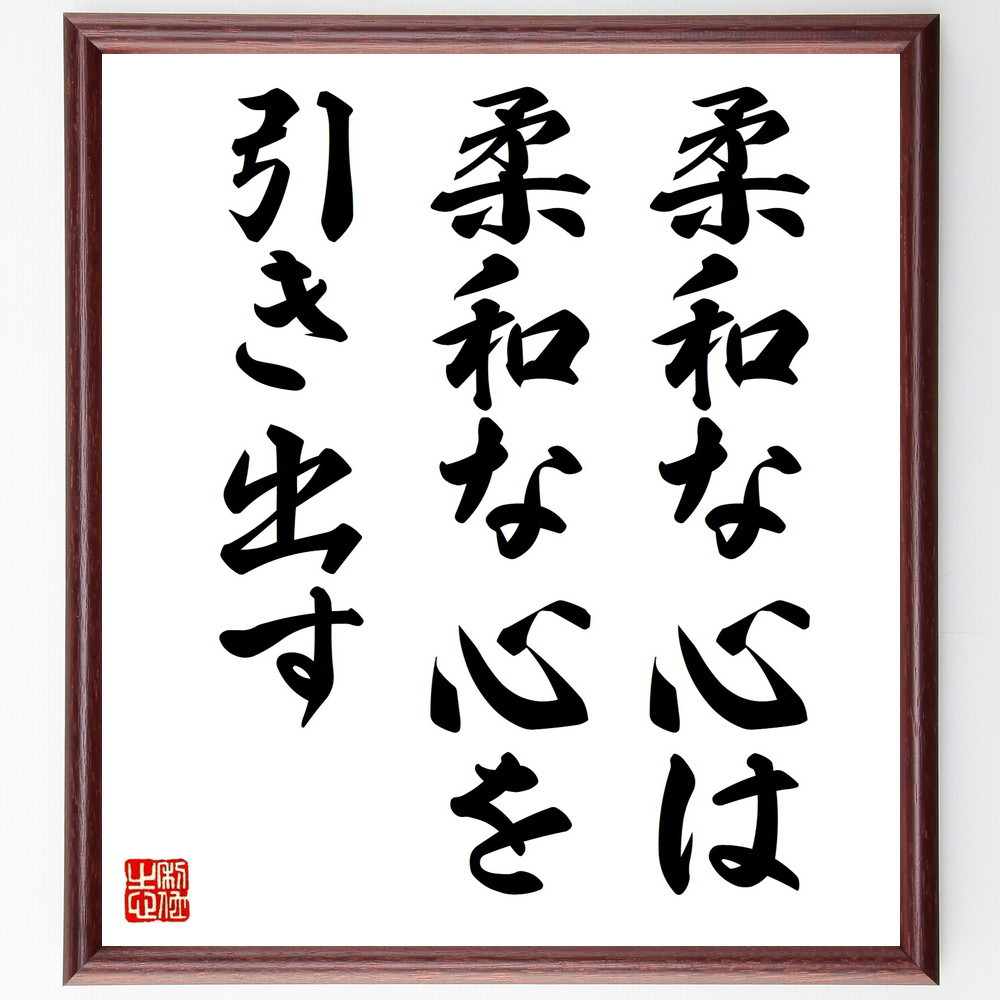 柔和な心は
柔和な心を
引き出す